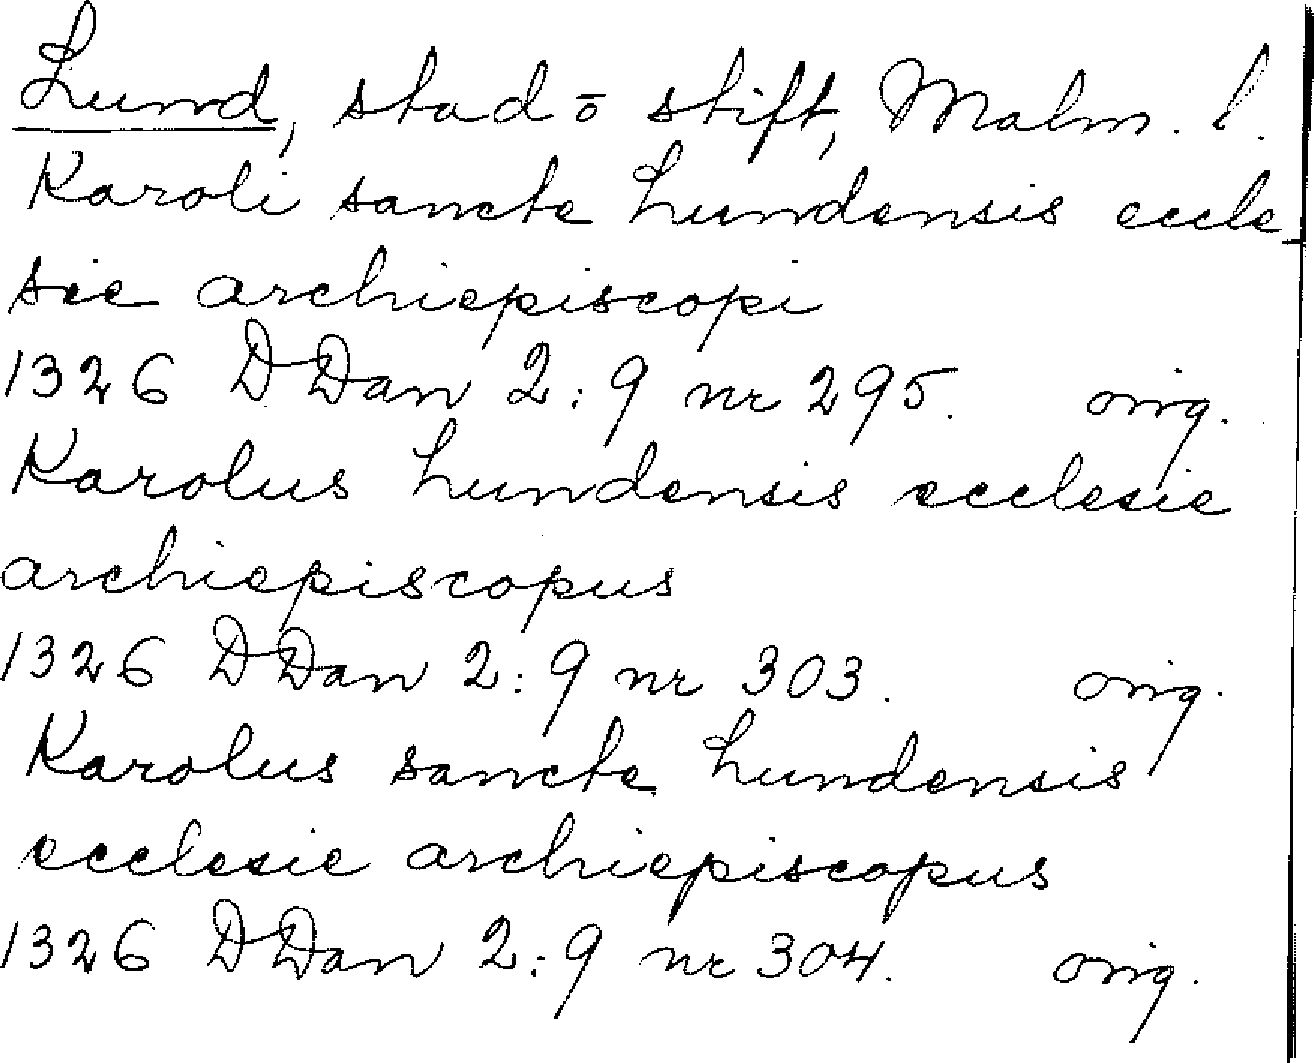 Lund, stad o stift, Malm. l.
Karoli sancte Lundensis eccle-
sie archiepiscopi
1326 DDan 2:9 nr 295. orig.
Karolus Lundensis ecclesie
archiepiscopus
1326 DDan 2:9 nr 303. orig.
Karolus sancte Lundensis
ecclesie archiepiscopus
1326 DDan 2:9 nr 304. orig.